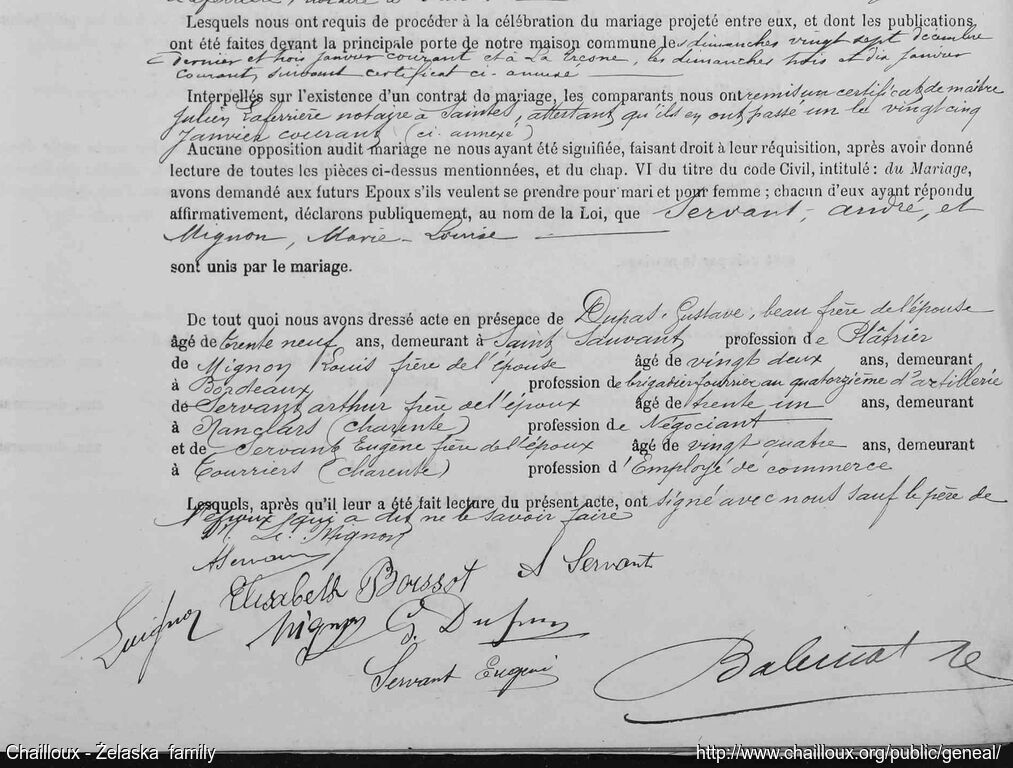 Lesquels nous ont requis de procéder à la célébration du mariage projeté entre eux, et dont les publications
ont été faites devant la principale porte de notre maison commune les dimanches vingt sept décembre
dernier et trois janvier courant et à La Tresne, les dimanches trois et dix janvier
courant, suivant certificat ci-annexé
Interpellés sur l'existence d'un contrat de mariage, les comparants nous ont remis un certificat de maître
Julien Laferrière notaire à Saintes, attestant qu'ils en ont passé un le vingt cinq
Janvier courant (ci annexé)
Aucune opposition audit mariage ne nous ayant été signifiée, faisant droit à leur réquisition, après avoir donné
lecture de toutes les pièces ci-dessus mentionnées, et du chap. VI du titre du code Civil, intitulé : du Mariage,
avons demandé aux futurs Epoux s'ils veulent se prendre pour mari et pour femme ; chacun d'eux ayant répondu
affirmativement, déclarons publiquement, au nom de la Loi, que Servant, andré, et
Mignon, Marie-Louise
sont unis par le mariage.
De tout quoi nous avons dressé acte en présence de Dupas, Gustave, beau frère de l'épouse
âgé de trente neuf ans, demeurant à Saint Sauvant profession de Plâtrier
de Mignon Louis frère de l'épouse âgé de vingt deux ans, demeurant
à Bordeaux profession de brigadier fourrier au quatorzième d'artillerie
de Servant arthur frère de l'époux âgé de trente un ans, demeurant
à Nanclars (charente) profession de Négociant
et de Servant Eugène frère de l'époux âgé de vingt quatre ans, demeurant
à Tourriers (charente) profession d'Employé de commerce
Lesquels, après qu'il leur a été fait lecture du présent acte, ont signé avec nous sauf le père de
l'époux qui a dit ne le savoir faire
M. L. Mignon
A Servant
Elisabeth Boissot A Servant
Mignon G. Dupas
Servant Eugène
Chailloux - Żelaska family
http://www.chailloux.org/public/geneal/